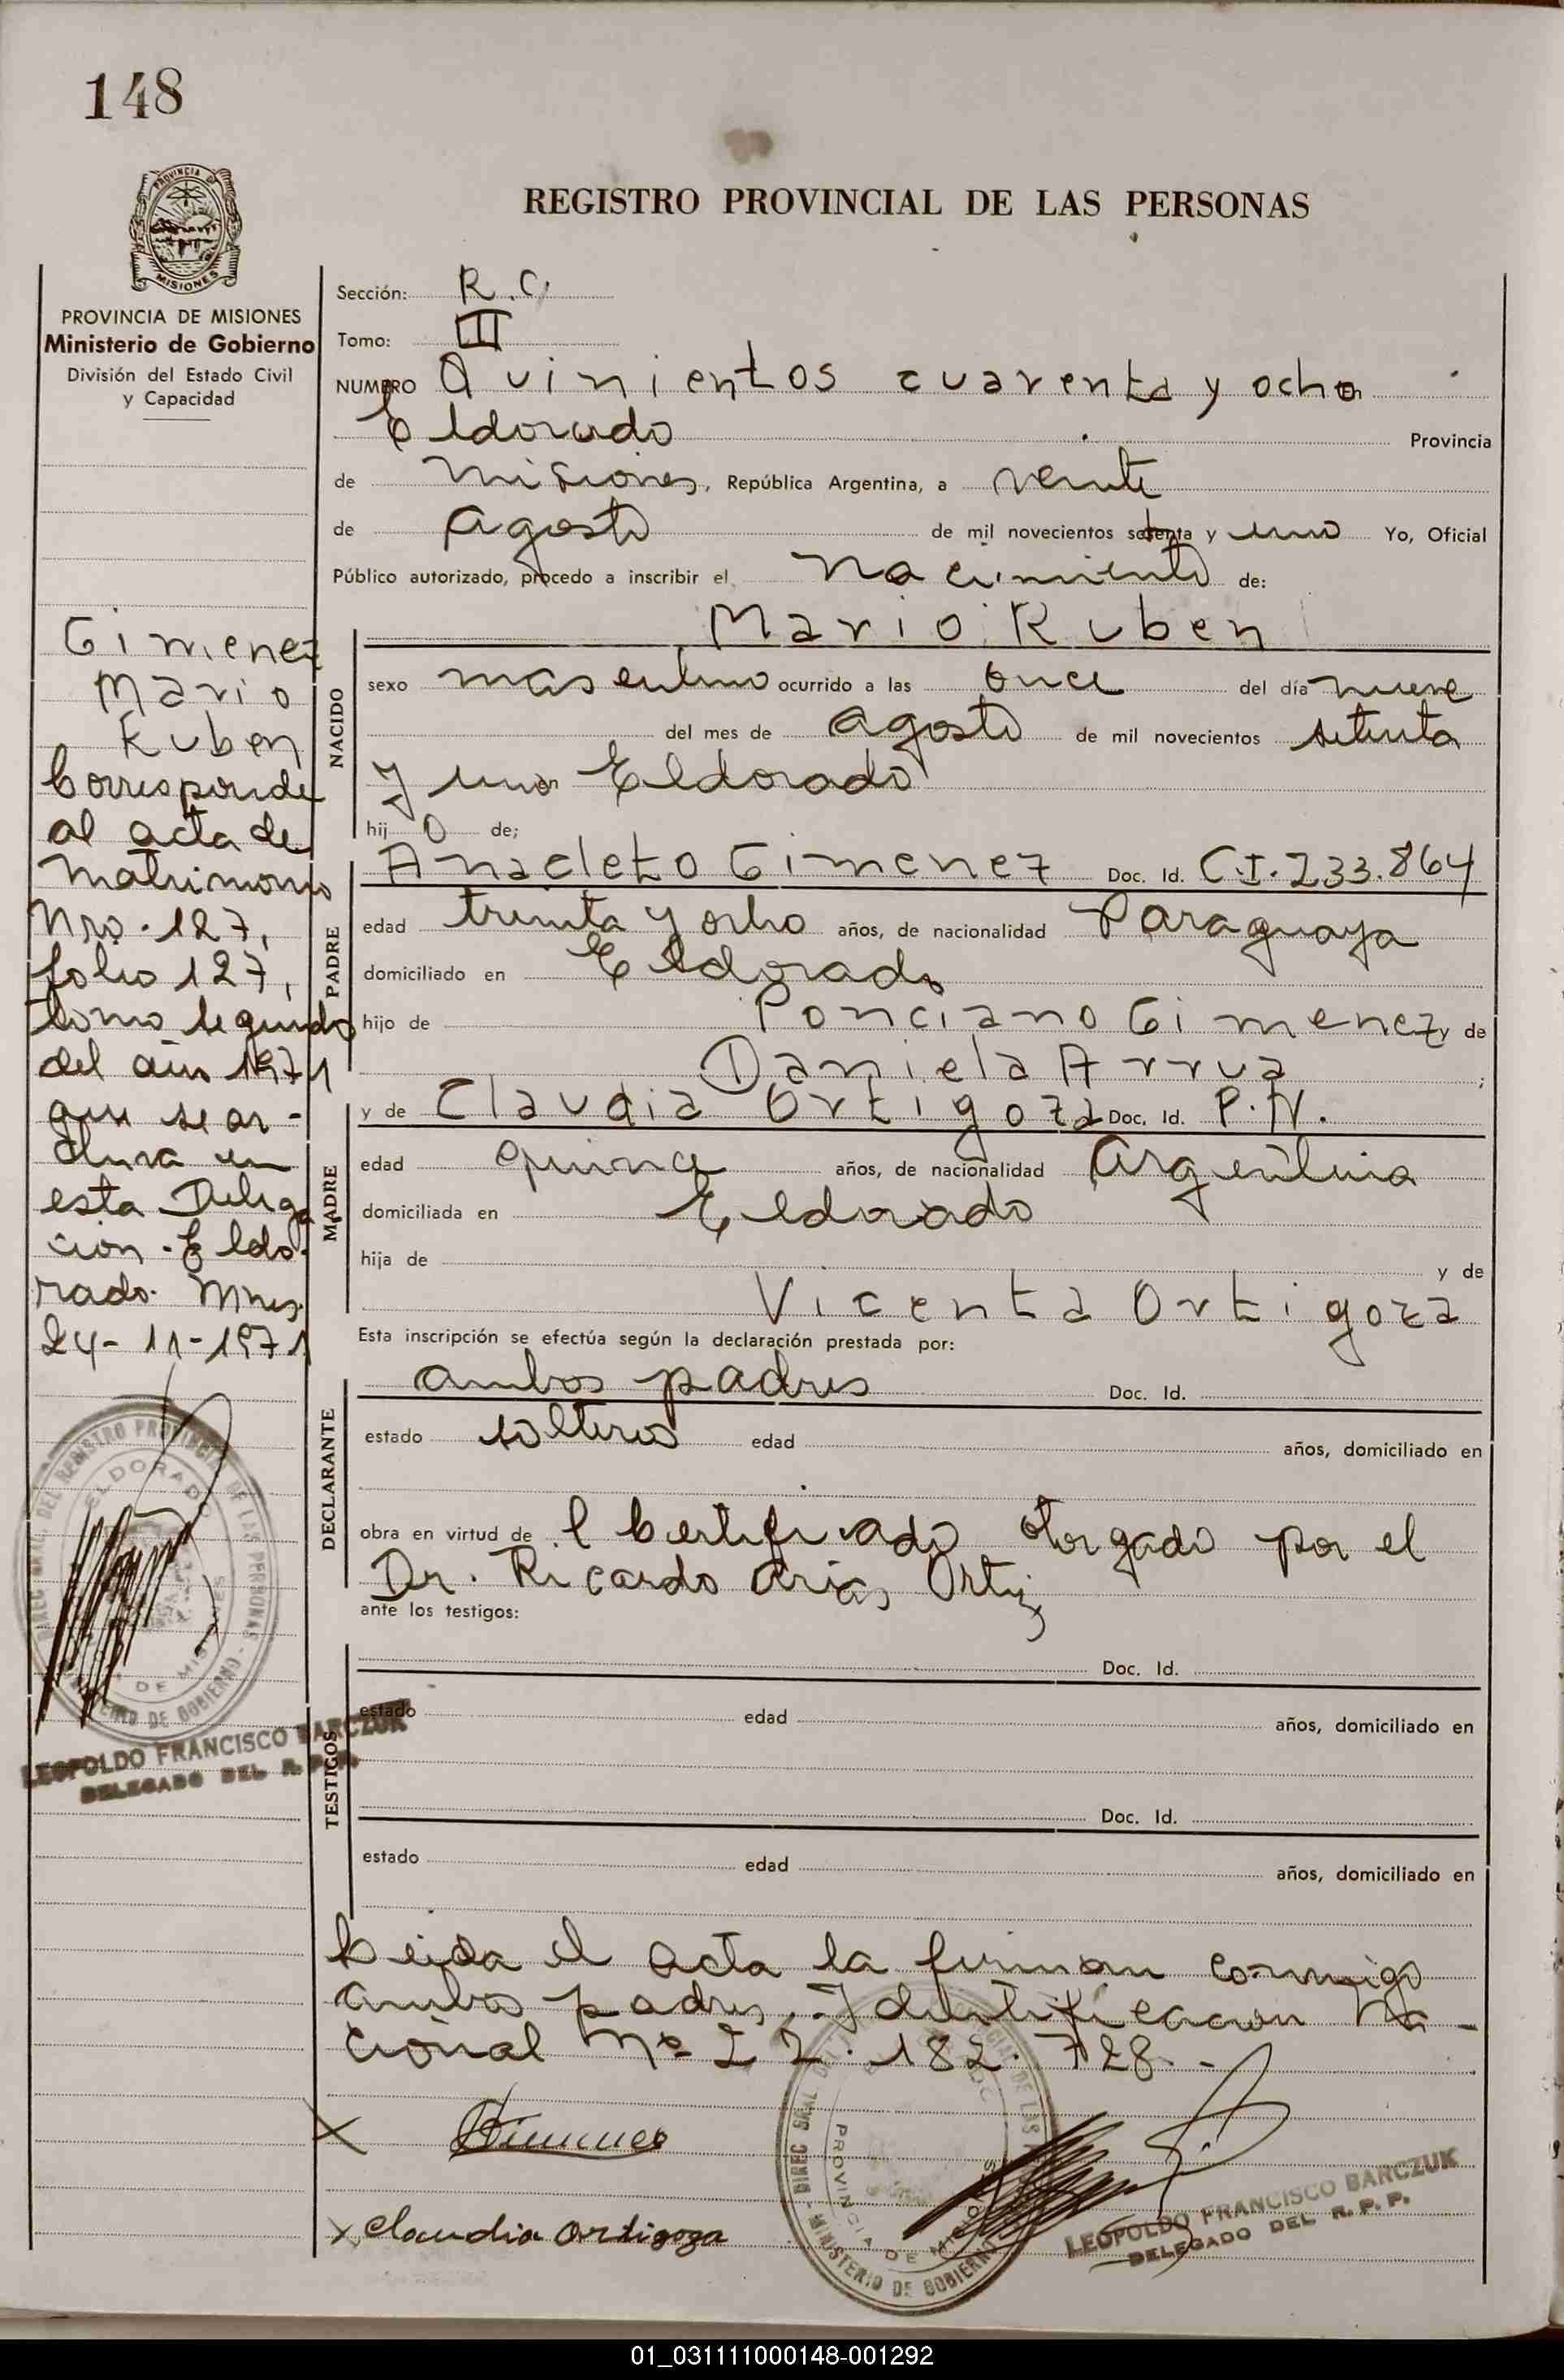 148
REGISTRO PROVINCIAL DE LAS PERSONAS
PROVINCIA DE
MISIONES
PROVINCIA DE MISIONES
Ministerio de Gobierno
División del Estado Civil
y Capacidad
Gimenez
Mario
Ruben
Corresponde
al acta de
Matrimonio
Nro. 127,
folio 127,
tomo segundo
del año 1971
que se ar-
chiva en
esta Delega
ción. Eldo-
rado. Mnes.
24-11-1971
DIREC. GRAL. DEL REGISTRO PROVINCIAL DE LAS PERSONAS - MINISTERIO DE GOBIERNO
ELDORADO
DE MISIONES
LEOPOLDO FRANCISCO BARCZUK
DELEGADO DEL R. P. P.
Sección: R.C.
Tomo: III
NUMERO Quinientos cuarenta y ocho
Eldorado Provincia
de Misiones, República Argentina, a veinte
de Agosto de mil novecientos setenta y uno Yo, Oficial
Público autorizado, procedo a inscribir el Nacimiento de:
NACIDO
Mario Ruben
sexo masculino ocurrido a las once del día nueve
del mes de Agosto de mil novecientos setenta
y uno Eldorado
hij o de;
PADRE
Anacleto Gimenez Doc. Id. C.I. 233.864
edad treinta y ocho años, de nacionalidad Paraguaya
domiciliado en Eldorado
hijo de Ponciano Gimenez y de
Daniela Arrua ;
MADRE
y de Claudia Ortigoza Doc. Id. P.N.
edad quince años, de nacionalidad Argentina
domiciliada en Eldorado
hija de y de
Vicenta Ortigoza
Esta inscripción se efectúa según la declaración prestada por:
DECLARANTE
ambos padres Doc. Id.
estado solteros edad años, domiciliado en
obra en virtud de l Certificado otorgado por el
Dr. Ricardo Arias Ortiz
ante los testigos:
TESTIGOS
Doc. Id.
estado edad años, domiciliado en
Doc. Id.
estado edad años, domiciliado en
Leida el acta la firman conmigo
ambos padres. Identificacion Na-
cional Nº 22.182.728.-
X
X Claudia Ortigoza
DIREC GRAL DE LAS MINISTERIO DE GOBIERNO
PROVINCIA DE MISIONES
LEOPOLDO FRANCISCO BARCZUK
DELEGADO DEL R. P. P.
01_031111000148-001292